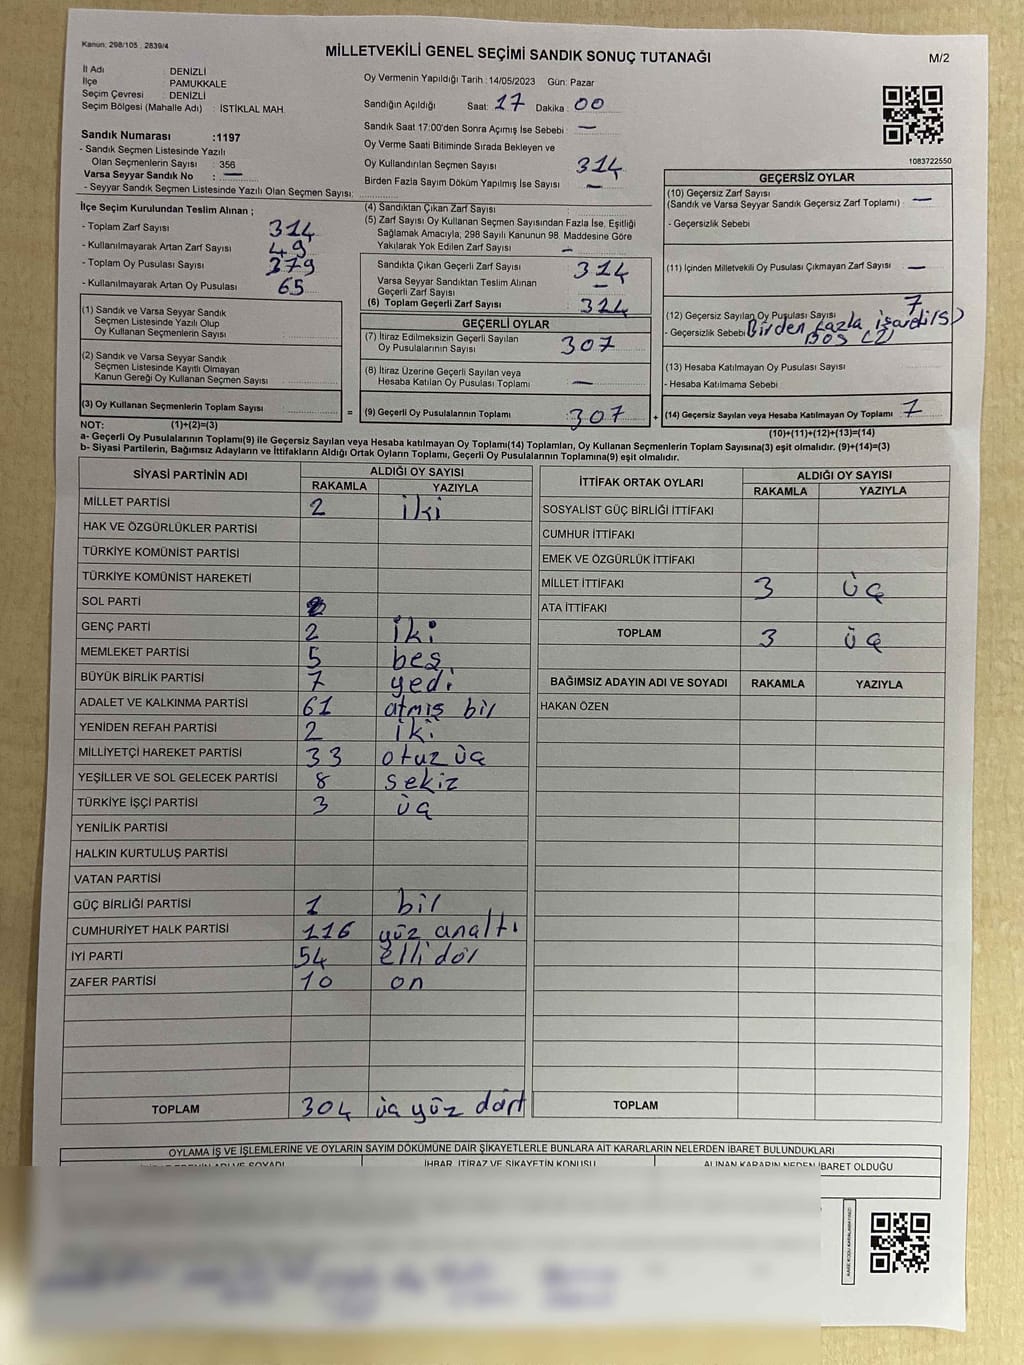 Kanun: 298/105 , 2839/4
MİLLETVEKİLİ GENEL SEÇİMİ SANDIK SONUÇ TUTANAĞI
M/2
İl Adı : DENİZLİ
İlçe : PAMUKKALE
Seçim Çevresi : DENİZLİ
Seçim Bölgesi (Mahalle Adı) : İSTİKLAL MAH.
Oy Vermenin Yapıldığı Tarih : 14/05/2023 Gün: Pazar
Sandığın Açıldığı Saat: 17 Dakika : 00
Sandık Saat 17:00'den Sonra Açımış İse Sebebi : —
Oy Verme Saati Bitiminde Sırada Bekleyen ve
Oy Kullandırılan Seçmen Sayısı 314
Birden Fazla Sayım Döküm Yapılmış İse Sayısı —
1083722550
Sandık Numarası :1197
- Sandık Seçmen Listesinde Yazılı
Olan Seçmenlerin Sayısı : 356
Varsa Seyyar Sandık No : —
- Seyyar Sandık Seçmen Listesinde Yazılı Olan Seçmen Sayısı:
İlçe Seçim Kurulundan Teslim Alınan ;
- Toplam Zarf Sayısı 314
- Kullanılmayarak Artan Zarf Sayısı 49
- Toplam Oy Pusulası Sayısı 379
- Kullanılmayarak Artan Oy Pusulası 65
(1) Sandık ve Varsa Seyyar Sandık
Seçmen Listesinde Yazılı Olup
Oy Kullanan Seçmenlerin Sayısı
(2) Sandık ve Varsa Seyyar Sandık
Seçmen Listesinde Kayıtlı Olmayan
Kanun Gereği Oy Kullanan Seçmen Sayısı
(3) Oy Kullanan Seçmenlerin Toplam Sayısı
(4) Sandıktan Çıkan Zarf Sayısı
(5) Zarf Sayısı Oy Kullanan Seçmen Sayısından Fazla İse, Eşitliği
Sağlamak Amacıyla; 298 Sayılı Kanunun 98. Maddesine Göre
Yakılarak Yok Edilen Zarf Sayısı —
Sandıkta Çıkan Geçerli Zarf Sayısı 314
Varsa Seyyar Sandıktan Teslim Alınan
Geçerli Zarf Sayısı —
(6) Toplam Geçerli Zarf Sayısı 314
GEÇERLİ OYLAR
(7) İtiraz Edilmeksizin Geçerli Sayılan
Oy Pusulalarının Sayısı 307
(8) İtiraz Üzerine Geçerli Sayılan veya
Hesaba Katılan Oy Pusulası Toplamı —
= (9) Geçerli Oy Pusulalarının Toplamı 307
GEÇERSİZ OYLAR
(10) Geçersiz Zarf Sayısı
(Sandık ve Varsa Seyyar Sandık Geçersiz Zarf Toplamı) —
- Geçersizlik Sebebi
(11) İçinden Milletvekili Oy Pusulası Çıkmayan Zarf Sayısı —
(12) Geçersiz Sayılan Oy Pusulası Sayısı 7
- Geçersizlik Sebebi Birden fazla
Boş (2)
(13) Hesaba Katılmayan Oy Pusulası Sayısı
- Hesaba Katılmama Sebebi
+ (14) Geçersiz Sayılan veya Hesaba Katılmayan Oy Toplamı 7
NOT: (1)+(2)=(3)
(10)+(11)+(12)+(13)=(14)
a- Geçerli Oy Pusulalarının Toplamı(9) ile Geçersiz Sayılan veya Hesaba katılmayan Oy Toplamı(14) Toplamları, Oy Kullanan Seçmenlerin Toplam Sayısına(3) eşit olmalıdır. (9)+(14)=(3)
b- Siyasi Partilerin, Bağımsız Adayların ve İttifakların Aldığı Ortak Oyların Toplamı, Geçerli Oy Pusulalarının Toplamına(9) eşit olmalıdır.
SİYASİ PARTİNİN ADI ALDIĞI OY SAYISI
RAKAMLA YAZIYLA
MİLLET PARTİSİ 2 iki
HAK VE ÖZGÜRLÜKLER PARTİSİ
TÜRKİYE KOMÜNİST PARTİSİ
TÜRKİYE KOMÜNİST HAREKETİ
SOL PARTİ
GENÇ PARTİ 2 iki
MEMLEKET PARTİSİ 5 beş
BÜYÜK BİRLİK PARTİSİ 7 yedi
ADALET VE KALKINMA PARTİSİ 61 atmış bir
YENİDEN REFAH PARTİSİ 2 iki
MİLLİYETÇİ HAREKET PARTİSİ 33 otuz üç
YEŞİLLER VE SOL GELECEK PARTİSİ 8 sekiz
TÜRKİYE İŞÇİ PARTİSİ 3 üç
YENİLİK PARTİSİ
HALKIN KURTULUŞ PARTİSİ
VATAN PARTİSİ
GÜÇ BİRLİĞİ PARTİSİ 1 bir
CUMHURİYET HALK PARTİSİ 116 yüz onaltı
İYİ PARTİ 54 elli dör
ZAFER PARTİSİ 10 on
TOPLAM 304 üç yüz dört
İTTİFAK ORTAK OYLARI ALDIĞI OY SAYISI
RAKAMLA YAZIYLA
SOSYALİST GÜÇ BİRLİĞİ İTTİFAKI
CUMHUR İTTİFAKI
EMEK VE ÖZGÜRLÜK İTTİFAKI
MİLLET İTTİFAKI 3 üç
ATA İTTİFAKI
TOPLAM 3 üç
BAĞIMSIZ ADAYIN ADI VE SOYADI RAKAMLA YAZIYLA
HAKAN ÖZEN
TOPLAM
OYLAMA İŞ VE İŞLEMLERİNE VE OYLARIN SAYIM DÖKÜMÜNE DAİR ŞİKAYETLERLE BUNLARA AİT KARARLARIN NELERDEN İBARET BULUNDUKLARI
İHBAR, İTİRAZ VE ŞİKAYETİN KONUSU
ALINAN KARARIN NEDEN İBARET OLDUĞU